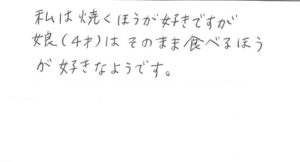 私は焼くほうが好きですが
娘(4才)はそのまま食べるほう
が好きなようです。